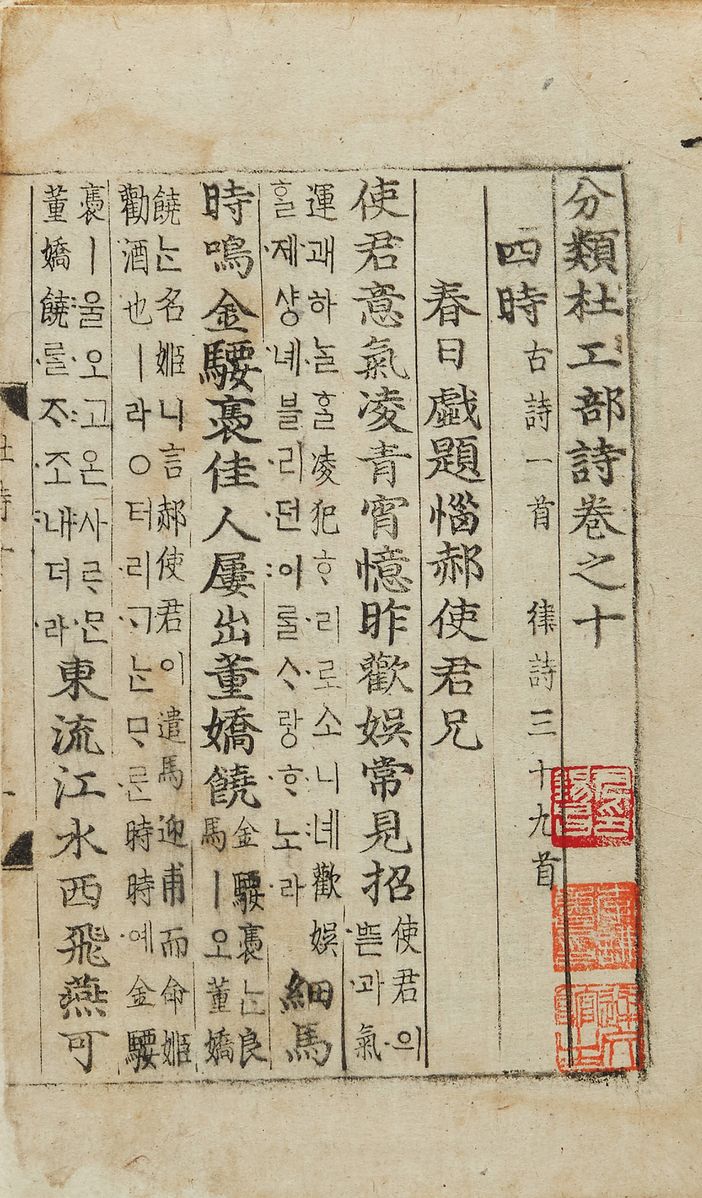 分類杜工部詩卷之十
四時 古詩一首 律詩三十九首
春日戱題惱郝使君兄
使君意氣凌靑宵憶昨歡娛常見招
使君의
ᄠᅳᆮ과氣
運괘하ᄂᆞᆯᄒᆞᆯ凌犯ᄒᆞ리로소니녜歡娛
ᄒᆞᆯ제샹녜블리던이ᄅᆞᆯᄉᆞ랑ᄒᆞ노라
細馬
時鳴金騕褭佳人屢出董嬌饒
金騕褭ᄂᆞᆫ良
馬ㅣ오董嬌
饒ᄂᆞᆫ名姬니言郝使君이遣馬迎甫而命姬
勸酒也ㅣ라○터리ᄀᆞᄂᆞᆫᄆᆞᄅᆞᆫ時時예金騕
褭ㅣ울오고온사ᄅᆞᄆᆞᆫ
董嬌饒ᄅᆞᆯᄌᆞ조내더라
東流江水西飛燕可